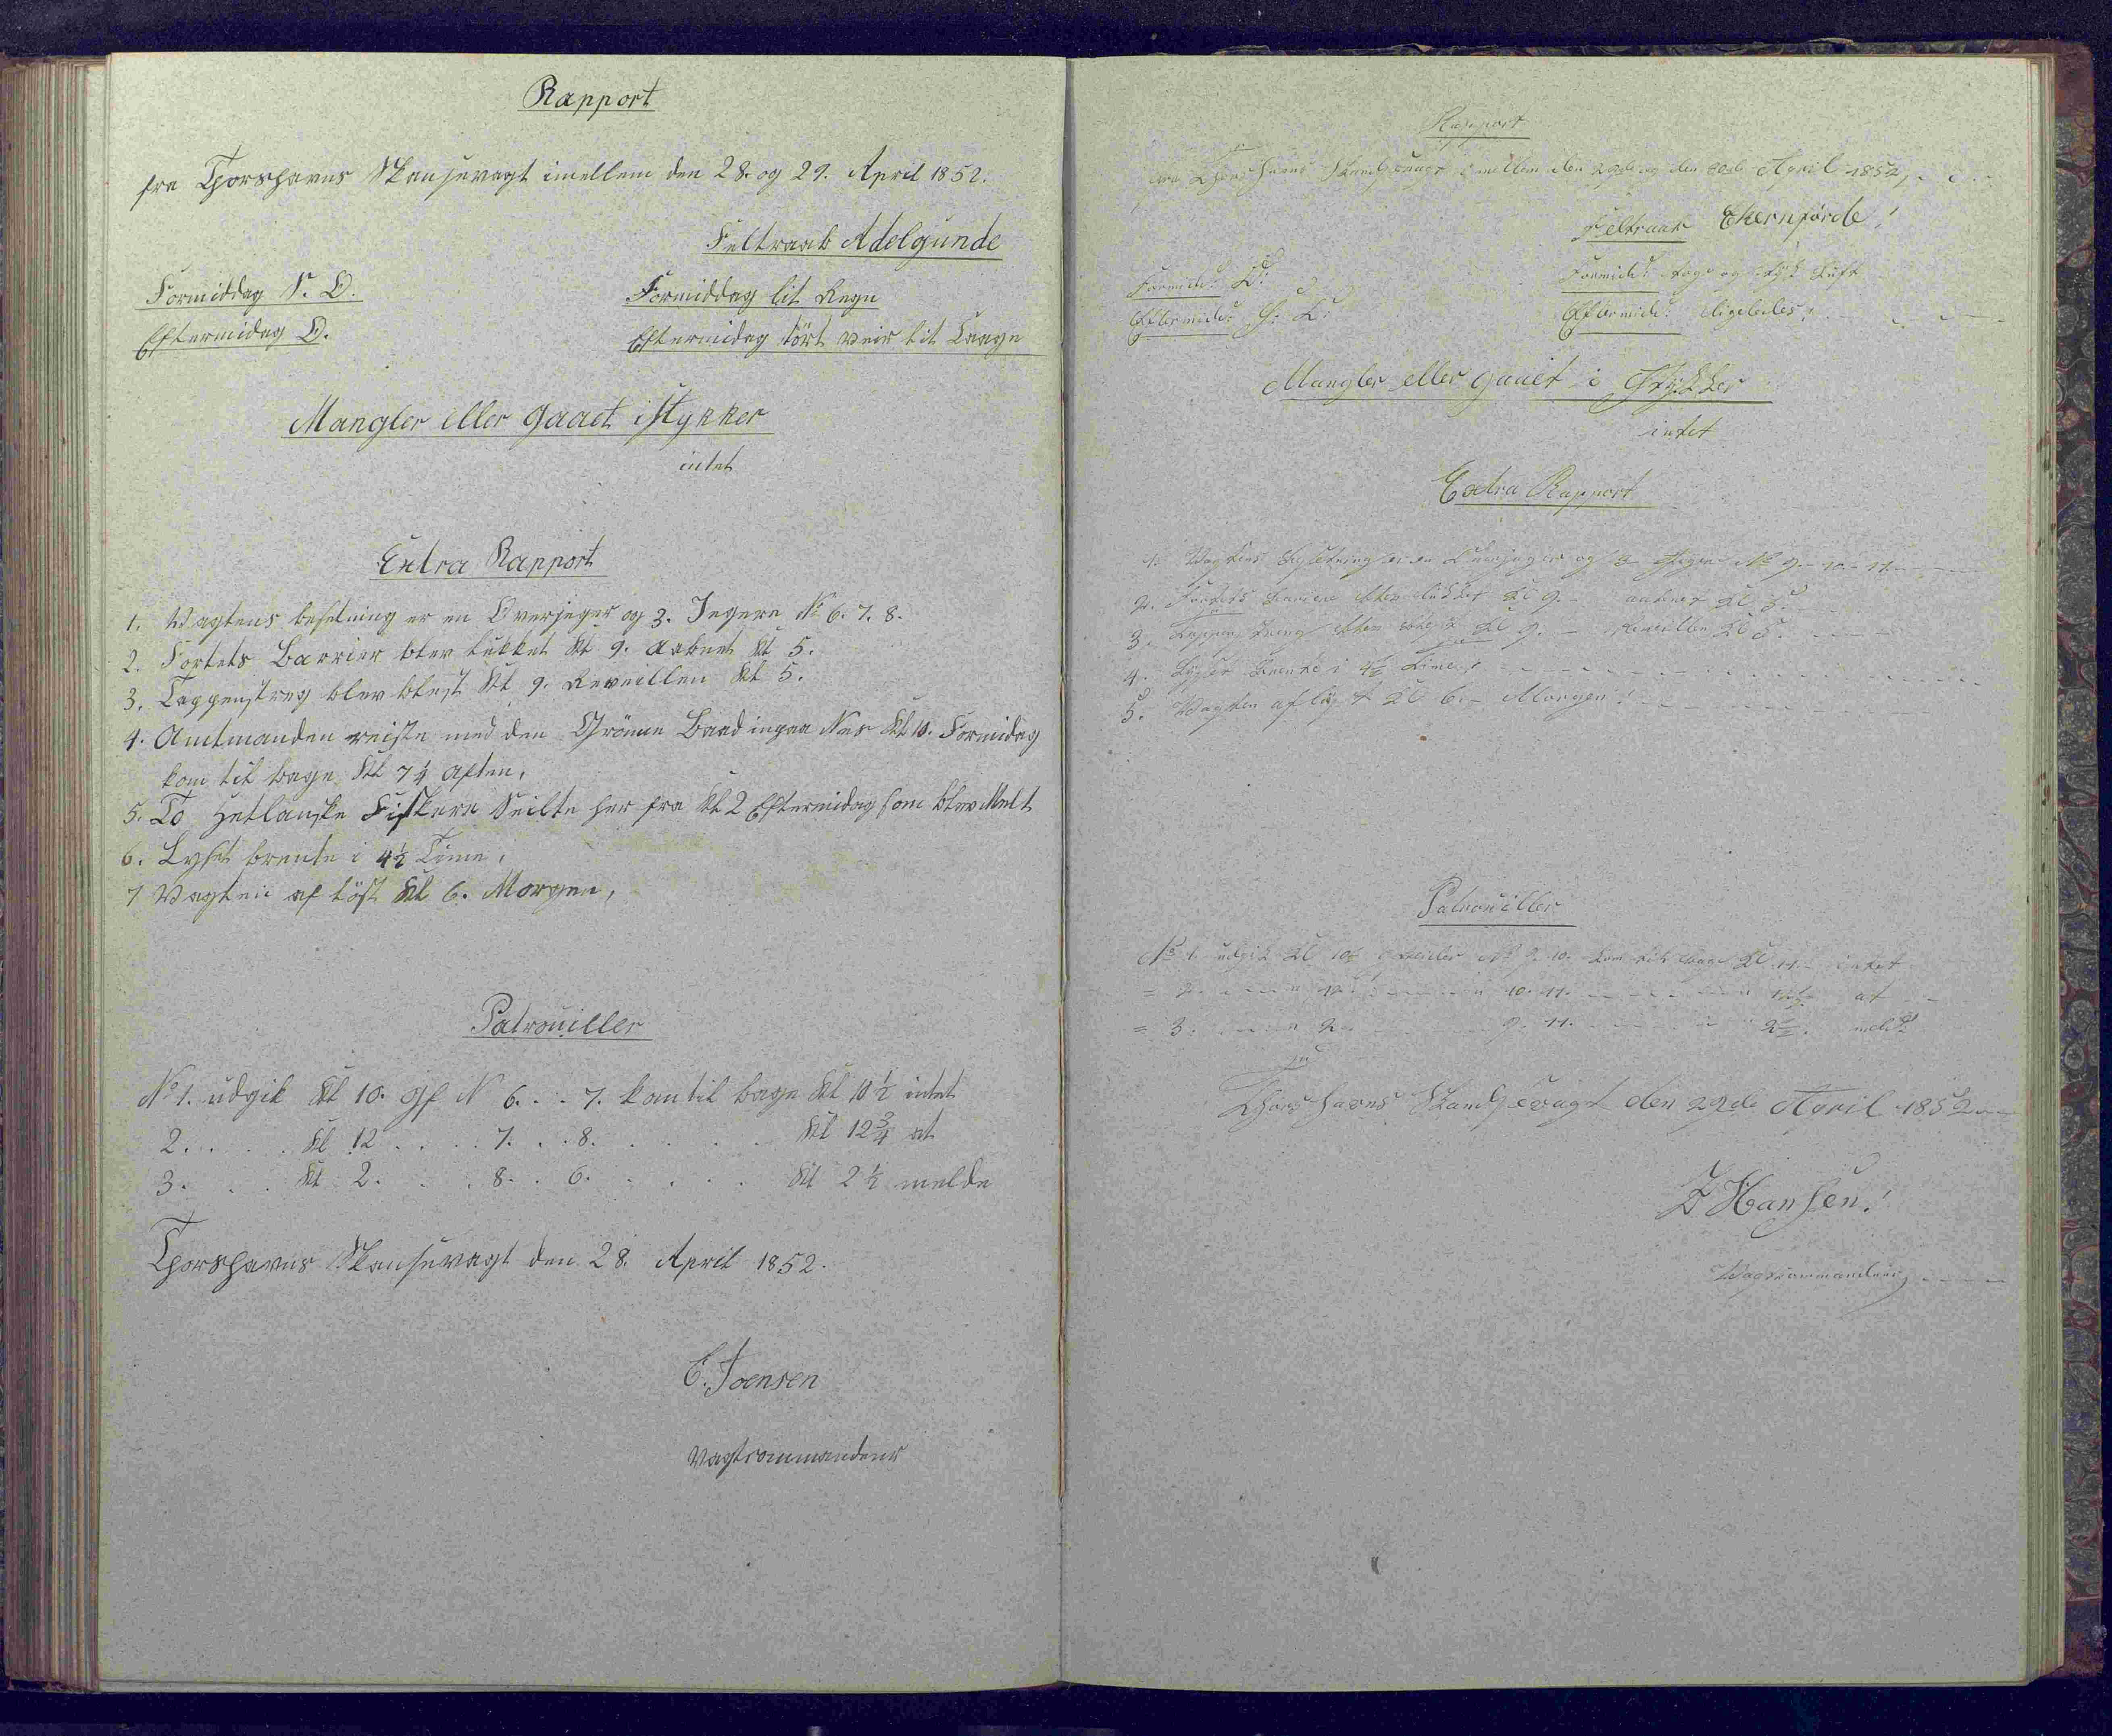 Rapport
fra Thorshavns Skansevagt imellem den 28. og 29. April 1852.
Feltraab Adelgunde
Formiddag S. O.
Formiddag lit Regn
Eftermidag O.
Eftermidag tört veir lit Taage
Mangler eller gaaet istykker
intet
Extra Rapport
1. Vagtens besetning er en Overjeger og 3. Jegere No 6. 7. 8.
2. Fortets Barrier blev lukket Kl 9. Aabnet Kl 5.
3. Tappenstreg blev blest Kl 9. Reveillen Kl 5.
4. Amtmanden reiste med den Grönne Baad ingaa Nes Kl 10. Formidag
kom til bage Kl 7¼ Aften,
5. To Hetlanske Fiskere Seilte her fra Kl 2 Eftermidag som blev Melt
6. Lyset brente i 4½ Time,
7 Vagten af löst Kl 6. Morgen,
Patrouiller
No 1. udgik Kl 10. gf N 6. . . 7. kom til bage Kl 10½ intet
2. . . . . Kl 12 . . . . 7. . . 8. . . . . . Kl 12¾ at
3. . . . Kl 2. . . . 8. . 6. . . . . . Kl 2½ melde
Thorshavns Skansevagt den 28. April 1852.
C. Joensen
Vagtcommandeur
Rapport
fra Thorshavns Skandsevagt imellem den 29de og den 30te April 1852,
Feltraab Ekernförde!
Formidd: O:
Formidd: Taage og tyk Luft
Eftermidd: S: O:
Eftermidd: ligeledes,
Mangler eller gaaet i Stykker
intet
Extra Rapport
1. Vagtens Besetning er en Overjeger og 3 Jegere No 9. 10. 11.
2. Fortets Bariere blev lukket Kl 9. - aabnet Kl 5.
3. Tappenstreg blev blest Kl 9. - Reveillen Kl 5.
4. Lyset brente i 4½ Time,
5. Vagten aflöst Kl 6. - Morgen!
Patrouiller
No 1 udgik Kl 10½ No 9. 10. kom til bage Kl 11. - intet
= 2. 12. 10. 11. 12½ at
= 3. 2. 9. 11. 2½. meld:
Thorshavns Skandsevagt den 29de April 1852
Z Hansen!
Vagtcommandeur,